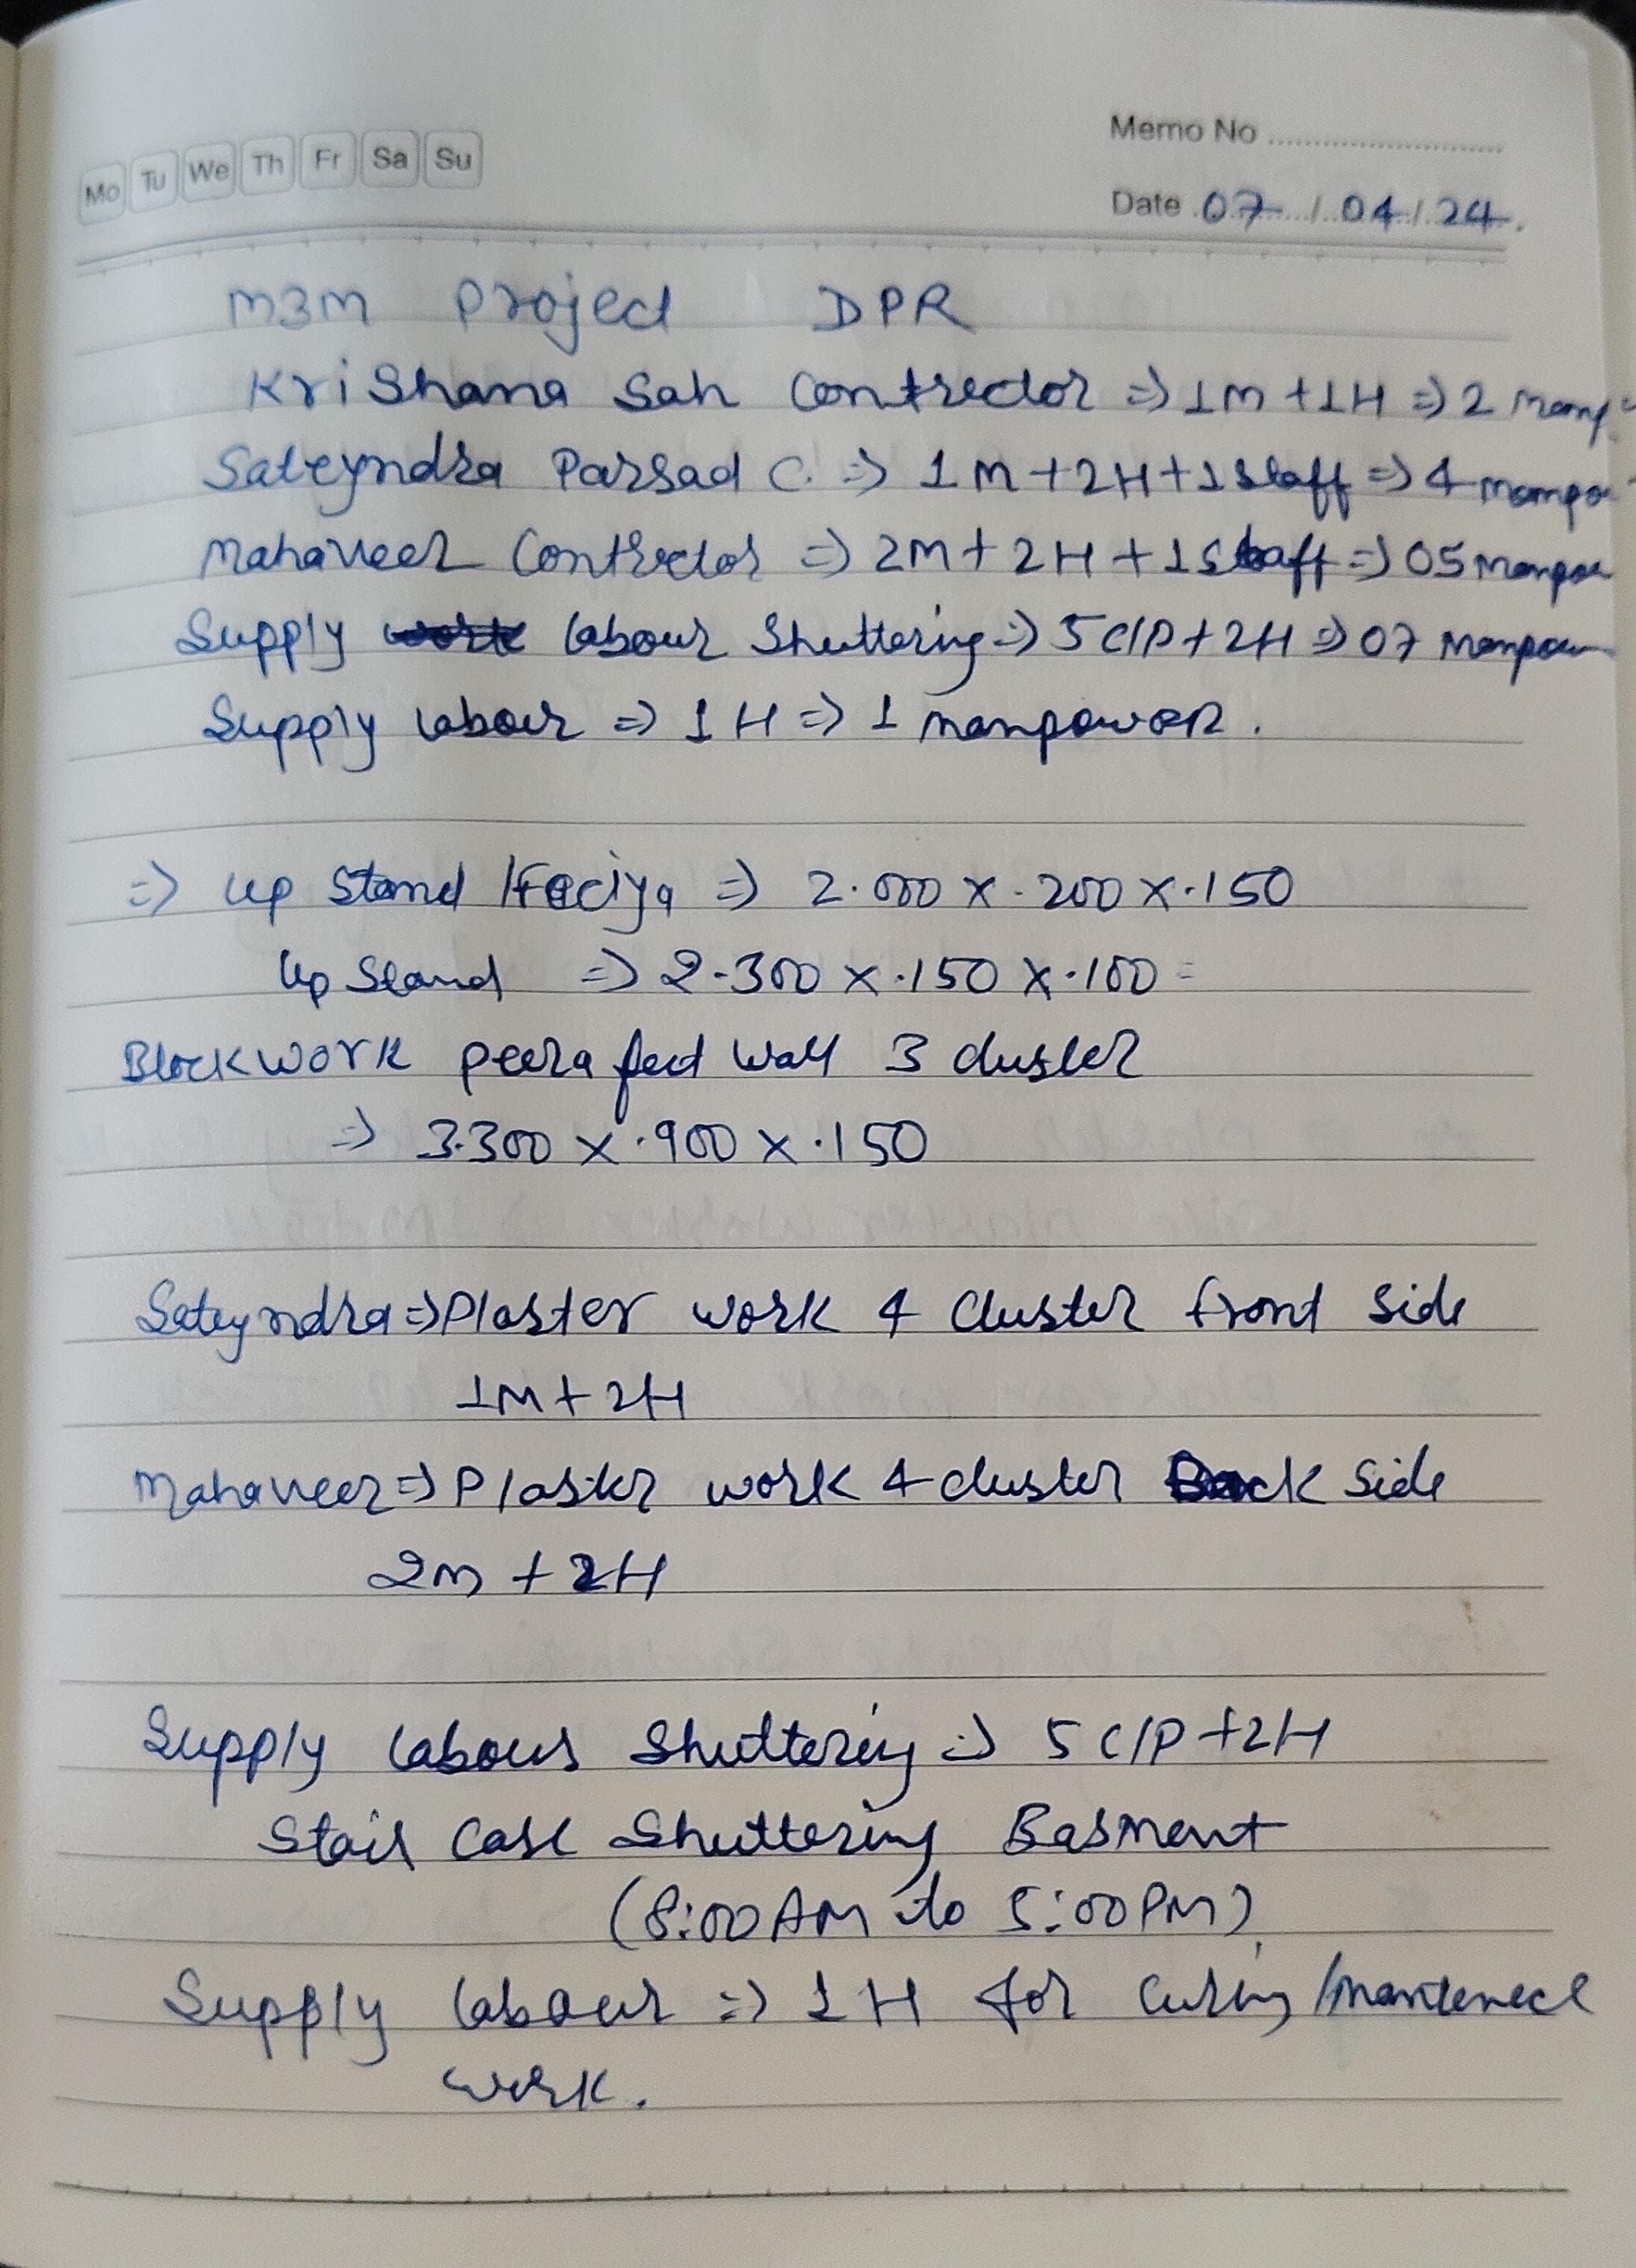 Mo Tu We Th Fr Sa Su
Memo No
Date 07/04/24.
M3M Project DPR
Krishana Sah Contrector => 1M + 1H => 2 Manp
Sateyndra Parsad C. => 1M + 2H + 1 Staff => 4 manpo
Mahaveer Contrector => 2M + 2H + 1 Staff => 05 Manpow
Supply labour Shuttering => 5 C/P + 2H => 07 Manpow
Supply labour => 1 H => 1 manpower.
=> Up Stand / Faciya => 2.000 x .200 x .150
Up Stand => 2.300 x .150 x .100 =
Block work peera fect Wall 3 cluster
=> 3.300 x .900 x .150
Sateyndra => Plaster work 4 Cluster front Side
1M + 2H
Mahaveer => Plaster work 4 cluster Back Side
2M + 2H
Supply labour Shuttering => 5 C/P + 2H
Stair Case Shuttering Basment
(8:00 AM to 5:00 PM)
Supply labour => 1 H for Curing / mantenece
work.